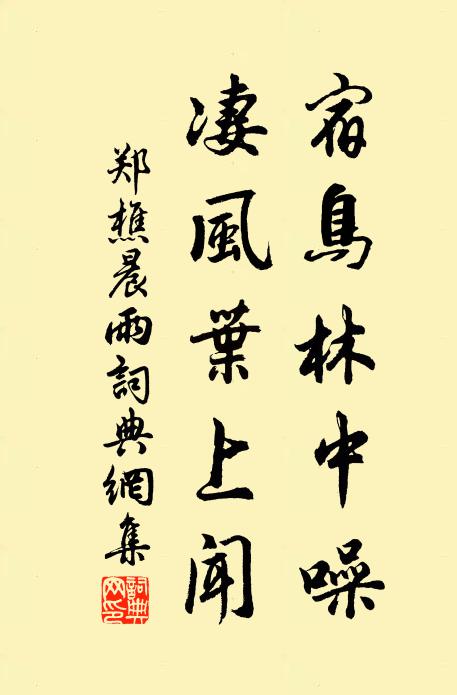 宿鳥林中噪
淒風葉上聞
郑樵晨雨詞典網集
詞典网印